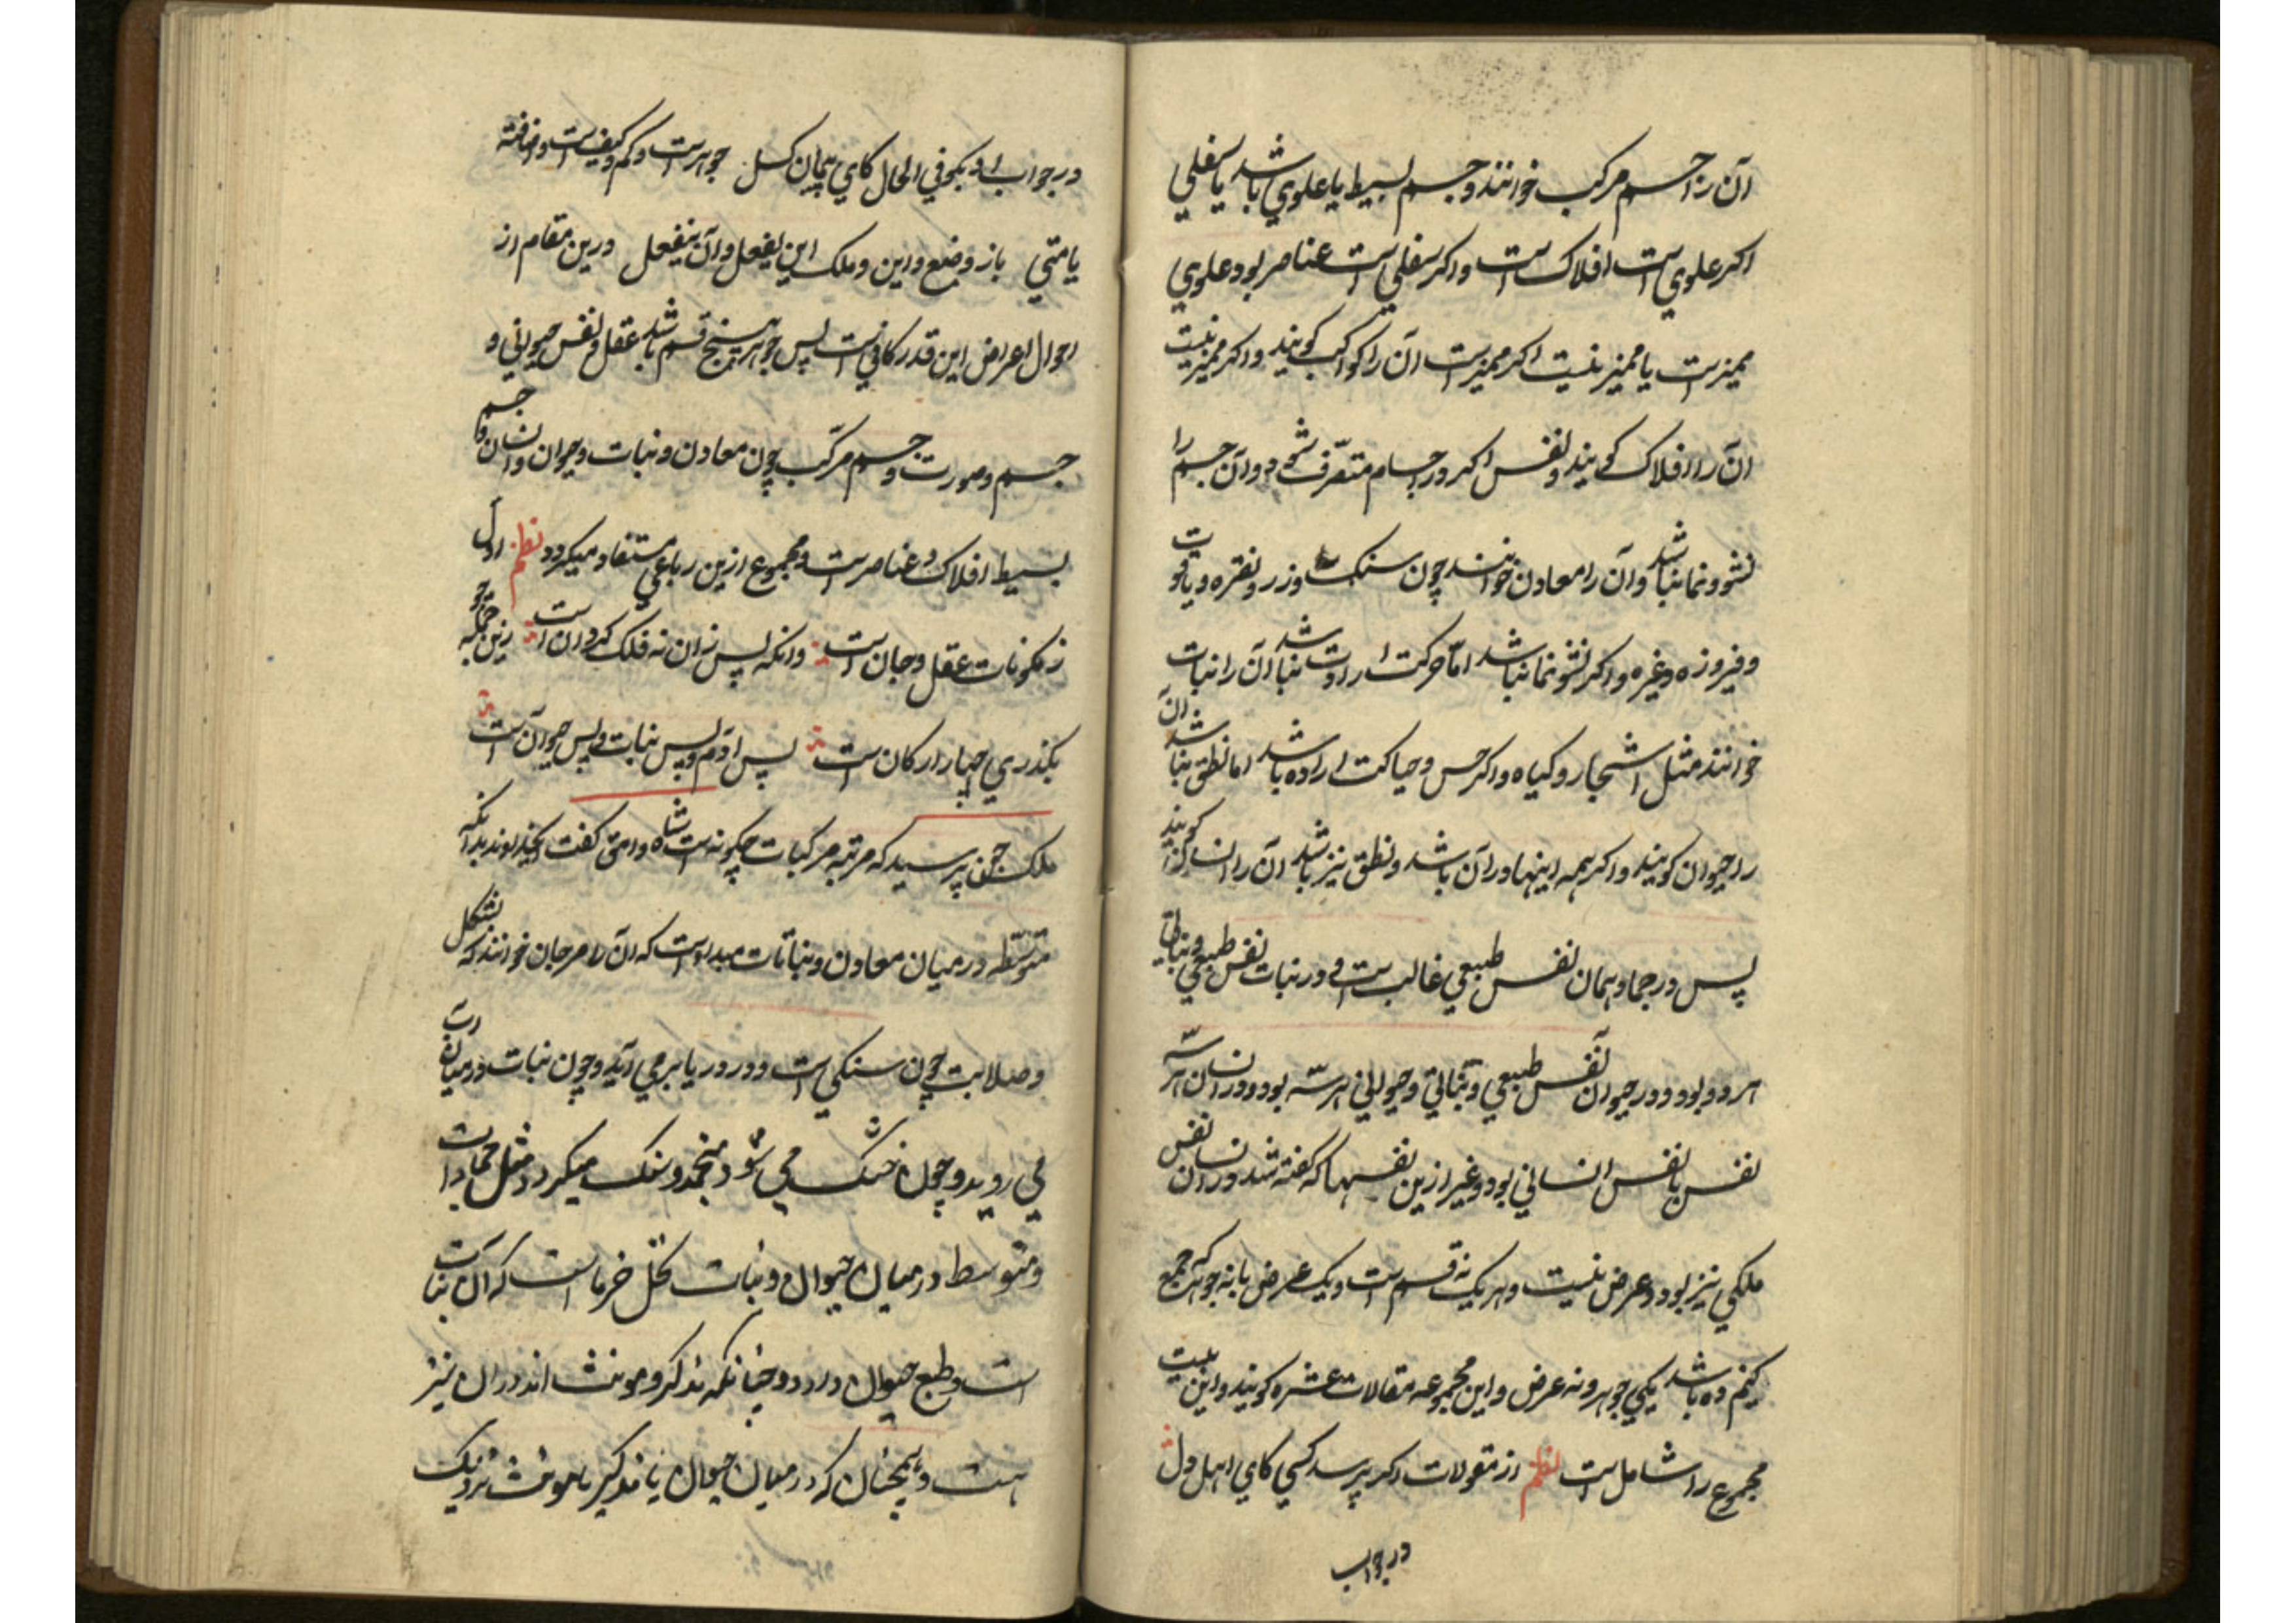 آن را جسم مرکب خوانند و جسم بسیط یا علوي باشد یا سفلي
اکر علوي است افلاک است و اکر سفلي است عناصر بود علوي
ممیزست یا ممیز نیست اکر ممیزست آن را کواکب کویند و اکر ممیز نیست
آن را افلاک کویند و نفس اکر در جسام متصرّف شود و آن جسم را
نشو و نما نباشد و آن را معادن خوانند چون سنک و زر و نقره و یاقوت
و فیروزه و غیره و اکر نشو نما نباشد امّا حرکت ارادت نباشد آن را نبات
خوانند مثل اشجار و کیاه و اکر حس و حیاکت اراده باشد اما نطق نباشد آن
را حیوان کویند و اکر همه اینها در آن باشد و نطق نیز باشد آن را انسان کویند
پس در جماد همان نفس طبیعي غالب است و در نبات نفس طبیعي و نباتي
هر دو بود و در حیوان نفس طبیعي و نباتي و حیواني هر سّه بود و در انسان هر سّه
نفس با نفس انساني بود و غیر ازین نفسها که کفته شد در انسان نفس
ملکي نیز بود و عرض نیست و هر یک نه قسم است و یک عرض با نه جوهر که جمع
کنم ده باشد یکي جوهر و نه عرض و این مجموعه مقالات عشره کویند و این بیت
مجموع را شامل است نظم از مقولات اکر پرسد کسي کاي اهل دل
در جواب
در جواب او بکو في الحال کاي پیمان کسل جوهرست و کم و کیفیست و اضافته
یا متي باز وضع و این و ملک این یفعل و آن ینفعل درین مقام از
احوال اعراض این قدر کافي است پس جوهر پنج قسم باشد عقل و نفس حیواني و
جسم و صورت و جسم مرکّب چون معادن و نبات و حیوان و انسان و جسم
بسیط افلاک و عناصر است و مجموع ازین رباعي مستفاد میکردد نظم اول
ز مکونات عقل و جان است وانکه پس زان نه فلک کردان است زین جمله چو
بکذري چهار ارکان است پس آدم و پس نبات و پس حیوان است
ملک جن پرسید که مرتبه مرکبات چکونه است شاه وامق کفت ای خداوند بدانکه
متوسّطه در میان معادن و نباتات مبداست که آن را مرجان خوانند که بشکل
و صلابت چون سنکي است و در دریا برمي آید و چون نبات در میان آب
مي روید و چون خشک مي شود منجمد و سنک میکردد مثل جمادات
و متوسط در میان حیوان و نبات نخل خرما است که آن نبات
است و طبع حیوان دارد و چنانکه مذکر و مونث اند در آن نیز
هست و همچنان که در میان حیوان یا مذکیر با مونث نزدیک